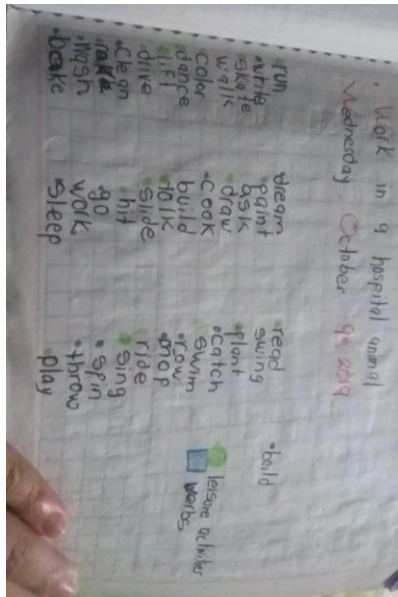 • Work in a hospital animal
Wednesday, October 9th 2019
run
•write
skate
walk
color
dance
lift
drive
clean
wash
brake
dream
paint
ask
draw
•cook
build
talk
slide
hit
go
work
sleep
read
swing
plant
•catch
swim
•row
mop
ride
sing
•spin
•throw
play
leisure activites
verbs